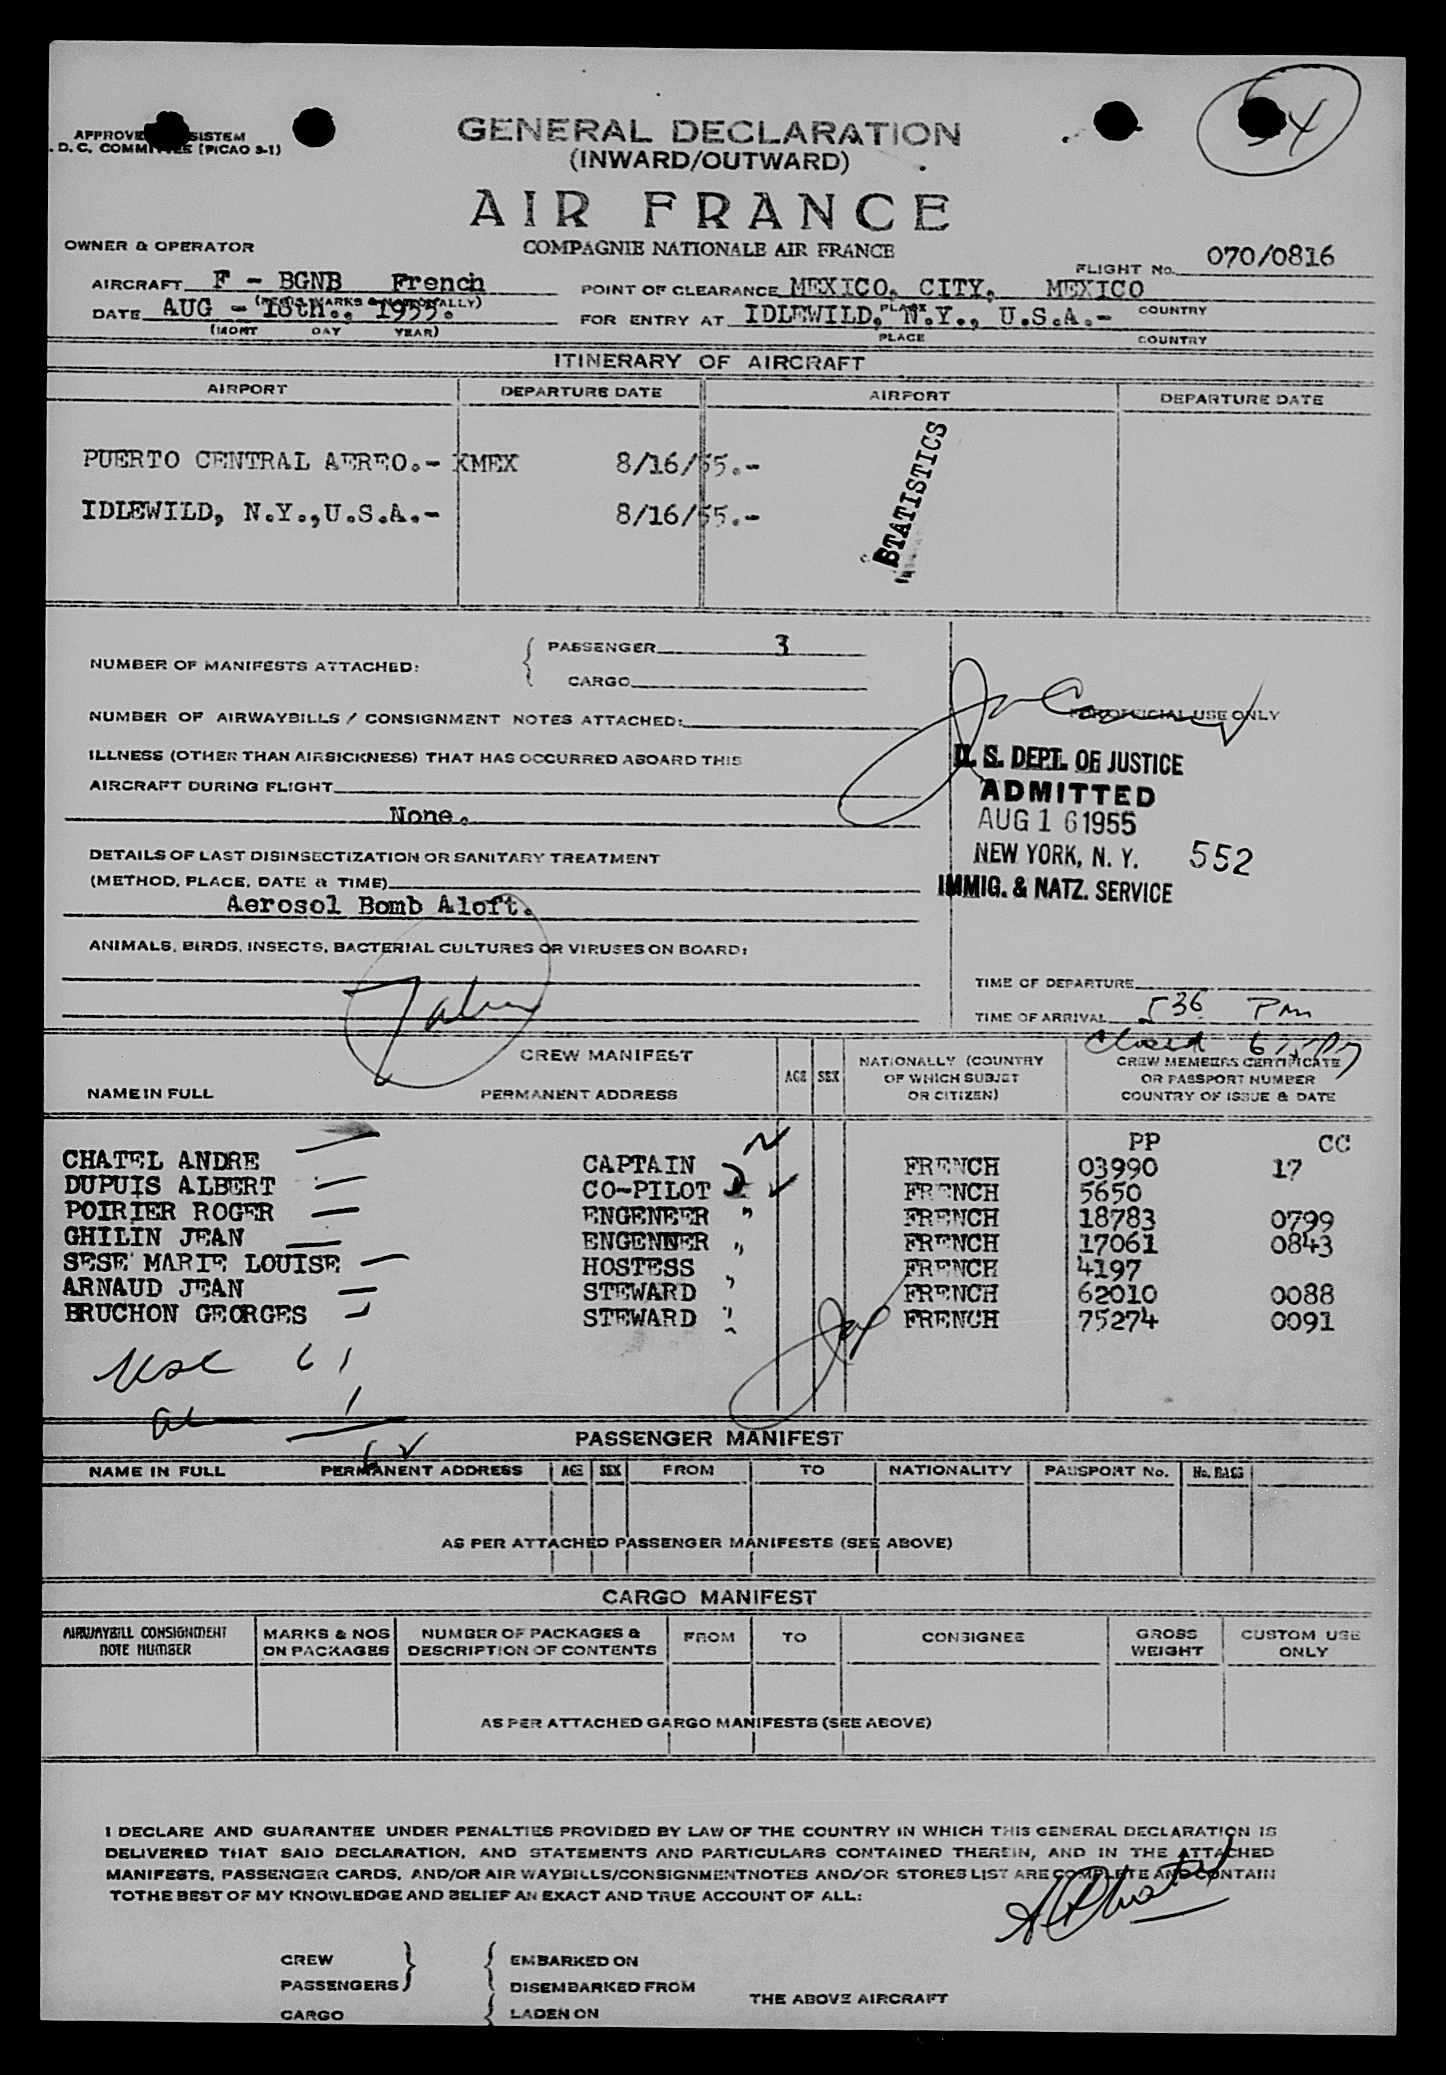 GENERAL DECLARATION
(INWARD/OUTWARD)
54
D. C. COMMITTEE (PICAO 3-1)
AIR FRANCE
COMPAGNIE NATIONALE AIR FRANCE
OWNER & OPERATOR
FLIGHT No. 070/0816
AIRCRAFT F - BGNB French
POINT OF CLEARANCE MEXICO, CITY, MEXICO
PLACE COUNTRY
DATE AUG - 16th., 1955.
(MONT DAY YEAR)
FOR ENTRY AT IDLEWILD, N.Y., U.S.A.-
PLACE COUNTRY
ITINERARY OF AIRCRAFT
AIRPORT DEPARTURE DATE AIRPORT DEPARTURE DATE
PUERTO CENTRAL AEREO.- XMEX 8/16/55.-
IDLEWILD, N.Y.,U.S.A.- 8/16/55.-
STATISTICS
NUMBER OF MANIFESTS ATTACHED:
PASSENGER 3
CARGO
NUMBER OF AIRWAYBILLS / CONSIGNMENT NOTES ATTACHED:
FOR OFFICIAL USE ONLY
ILLNESS (OTHER THAN AIRSICKNESS) THAT HAS OCCURRED ABOARD THIS
AIRCRAFT DURING FLIGHT
None.
U. S. DEPT. OF JUSTICE
ADMITTED
AUG 16 1955
NEW YORK, N. Y. 552
IMMIG. & NATZ. SERVICE
DETAILS OF LAST DISINSECTIZATION OR SANITARY TREATMENT
(METHOD, PLACE, DATE & TIME)
Aerosol Bomb Aloft.
ANIMALS, BIRDS, INSECTS, BACTERIAL CULTURES OR VIRUSES ON BOARD:
TIME OF DEPARTURE
TIME OF ARRIVAL 5 36 Pm
Closed
CREW MANIFEST
NAME IN FULL PERMANENT ADDRESS AGE SEX
NATIONALLY (COUNTRY
OF WHICH SUBJET
OR CITIZEN)
CREW MEMBERS CERTIFICATE
OR PASSPORT NUMBER
COUNTRY OF ISSUE & DATE
PP CC
CHATEL ANDRE CAPTAIN FRENCH 03990 17
DUPUIS ALBERT CO-PILOT FRENCH 5650
POIRIER ROGER ENGENEER " FRENCH 18783 0799
GHILIN JEAN ENGENEER " FRENCH 17061 0843
SESE' MARIE LOUISE HOSTESS FRENCH 4197
ARNAUD JEAN STEWARD " FRENCH 62010 0088
BRUCHON GEORGES STEWARD " FRENCH 75274 0091
PASSENGER MANIFEST
NAME IN FULL PERMANENT ADDRESS AGE SEX FROM TO NATIONALITY PASSPORT No. No. BAGS
AS PER ATTACHED PASSENGER MANIFESTS (SEE ABOVE)
CARGO MANIFEST
AIRWAYBILL CONSIGNMENT
NOTE NUMBER
MARKS & NOS
ON PACKAGES
NUMBER OF PACKAGES &
DESCRIPTION OF CONTENTS
FROM TO CONSIGNEE
GROSS
WEIGHT
CUSTOM USE
ONLY
AS PER ATTACHED GARGO MANIFESTS (SEE ABOVE)
I DECLARE AND GUARANTEE UNDER PENALTIES PROVIDED BY LAW OF THE COUNTRY IN WHICH THIS GENERAL DECLARATION IS
DELIVERED THAT SAID DECLARATION, AND STATEMENTS AND PARTICULARS CONTAINED THEREIN, AND IN THE ATTACHED
MANIFESTS, PASSENGER CARDS, AND/OR AIR WAYBILLS/CONSIGNMENTNOTES AND/OR STORES LIST ARE COMPLETE AND CONTAIN
TOTHE BEST OF MY KNOWLEDGE AND BELIEF AN EXACT AND TRUE ACCOUNT OF ALL:
CREW
PASSENGERS
CARGO
EMBARKED ON
DISEMBARKED FROM
LADEN ON
THE ABOVE AIRCRAFT